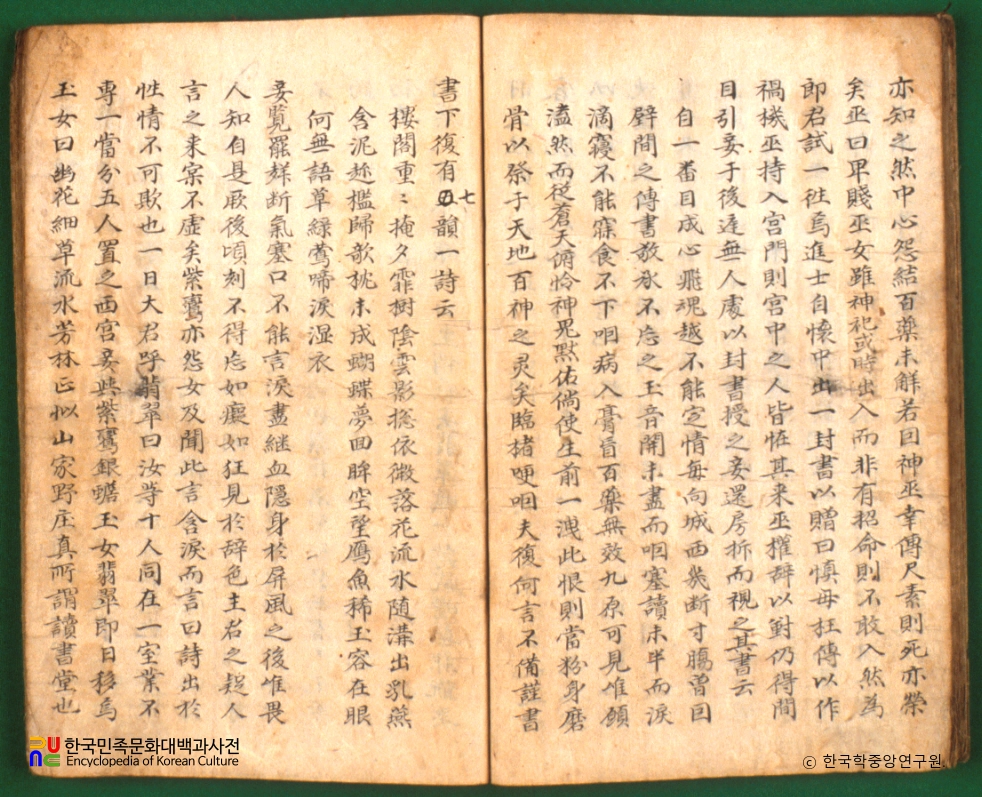 亦知之然中心怨結百藥未解若因神巫幸傳尺素則死亦榮
矣巫曰卑賤巫女雖神祀或時出入而非有招命則不敢入然為
郎君試一往焉進士自懷中出一封書以贈曰慎毋枉傳以作
禍機巫持入宮門則宮中之人皆恠其来巫權辞以對仍得間
目引妾于後庭無人處以封書授之妾還房拆而視之其書云
自一番目成心飛魂越不能定情每向城西幾断寸膓曽因
壁間之傳書敬承不忘之玉音開未盡而咽塞讀未半而淚
滴寢不能寐食不下咽病入膏肓百藥無效九原可見惟願
溘然而從蒼天俯怜神鬼黙佑倘使生前一洩此恨則當粉身磨
骨以祭于天地百神之灵矣臨楮哽咽夫復何言不備謹書
書下復有七韻一詩云
樓閣重〻掩夕霏樹陰雲影揔依微落花流水随溝出乳燕
含泥趂檻歸欹枕未成蝴蝶夢回眸空望鴈魚稀玉容在眼
何無語草綠鶯啼淚湿衣
妾覧罷聲断氣塞口不能言淚盡継血隱身於屏風之後惟畏
人知自是厥後頃刻不得忘如癡如狂見於辞色主君之疑人
言之来宲不虚矣紫鸞亦怨女及聞此言含淚而言曰詩出於
性情不可欺也一日大君呼翡翠曰汝等十人同在一室業不
專一當分五人置之西宮妾與紫鸞銀蟾玉女翡翠即日移焉
玉女曰幽花細草流水芳林正似山家野庄真所謂讀書堂也
한국민족문화대백과사전
Encyclopedia of Korean Culture
ⓒ 한국학중앙연구원